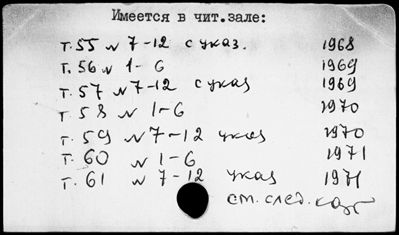 Имеется в чит.зале:
т.55 № 7-12 с указ. 1968
т.56 № 1-6 1969
т.57 № 7-12 с указ 1969
т.58 № 1-6 1970
т.59 № 7-12 указ 1970
т.60 № 1-6 1971
т.61 № 7-12 указ 1971
см.след.карт